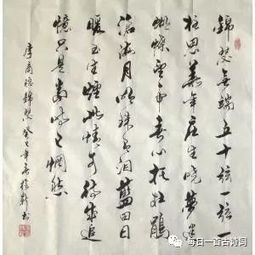 錦瑟無端五十弦一弦一
柱思華年莊生曉夢迷
蝴蝶望帝春心托杜鵑
滄海月明珠有淚藍田日
暖玉生煙此情可待成追
憶只是當時已惘然
李商隱錦瑟 癸巳年
每日一首古诗词